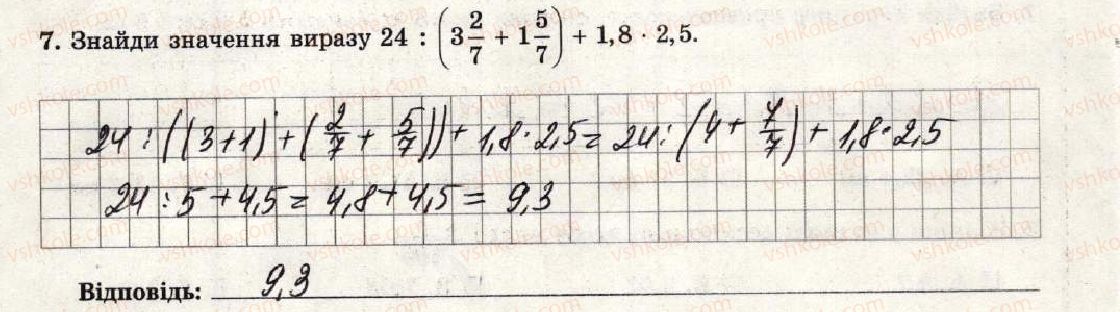 7. Знайди значення виразу 24 : (3 2/7 + 1 5/7) + 1,8 · 2,5.
24 : ((3+1) + (2/7 + 5/7)) + 1,8 · 2,5 = 24 : (4 + 7/7) + 1,8 · 2,5
24 : 5 + 4,5 = 4,8 + 4,5 = 9,3
Відповідь: 9,3